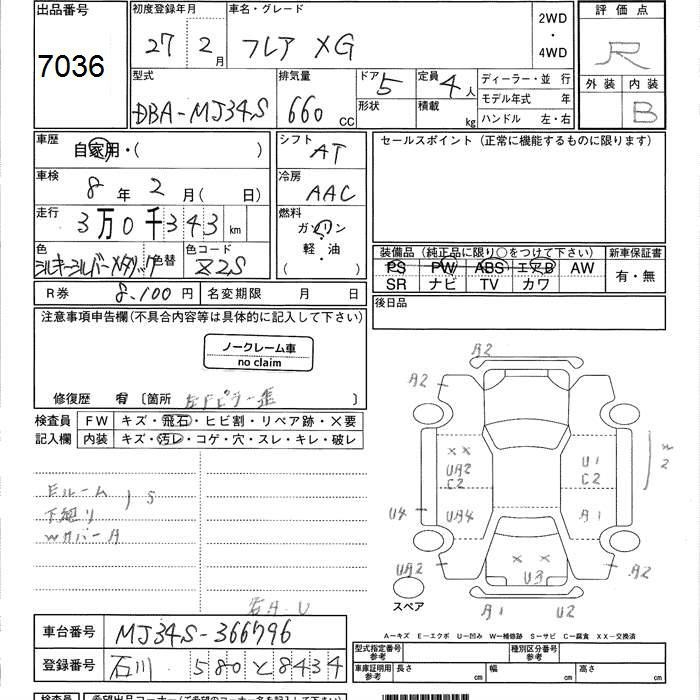 出品番号
7036
初度登録年月
27 2月
車名・グレード
フレア XG
2WD
・
4WD
評価点
R
外装 内装
B
型式
DBA-MJ34S
排気量
660 CC
ドア
5
形状
定員
4人
積載
kg
ディーラー・並 行
モデル年式 年
ハンドル 左・右
車歴
自家用・( )
車検
8年 2月( 日)
走行
3万0千343km
色
シルキーシルバーメタリック
色替
色コード
Z2S
シフト
AT
冷房
AAC
燃料
ガソリン
軽・油
( )
セールスポイント (正常に機能するものに限ります)
装備品 (純正品に限り○をつけて下さい)
PS PW ABS エアB AW
SR ナビ TV カワ
新車保証書
有・無
R券 8,100円
名変期限 月 日
後日品
注意事項申告欄(不具合内容等は具体的に記入して下さい)
ノークレーム車
no claim
修復歴 有 [箇所 ]
検査員
記入欄
FW キズ・飛石・ヒビ割・リペア跡・X要
内装 キズ・汚レ・コゲ・穴・スレ・キレ・破レ
Eルーム
S
下廻り
A2
A2
A2
XX
UA2
C2
U1
C2
W
2
U4
UA4
A1
XX
U3
UA2
A2
スペア
A1
U2
A-キズ E-エクボ U-凹み W-補修跡 S-サビ C-腐食 XX-交換済
車台番号
MJ34S-366796
登録番号
石川 580 と 8434
型式指定番号
参考
種別区分番号
参考
車庫証明用
参考
長さ cm
幅 cm
高さ cm
検査員
希望出品コーナー